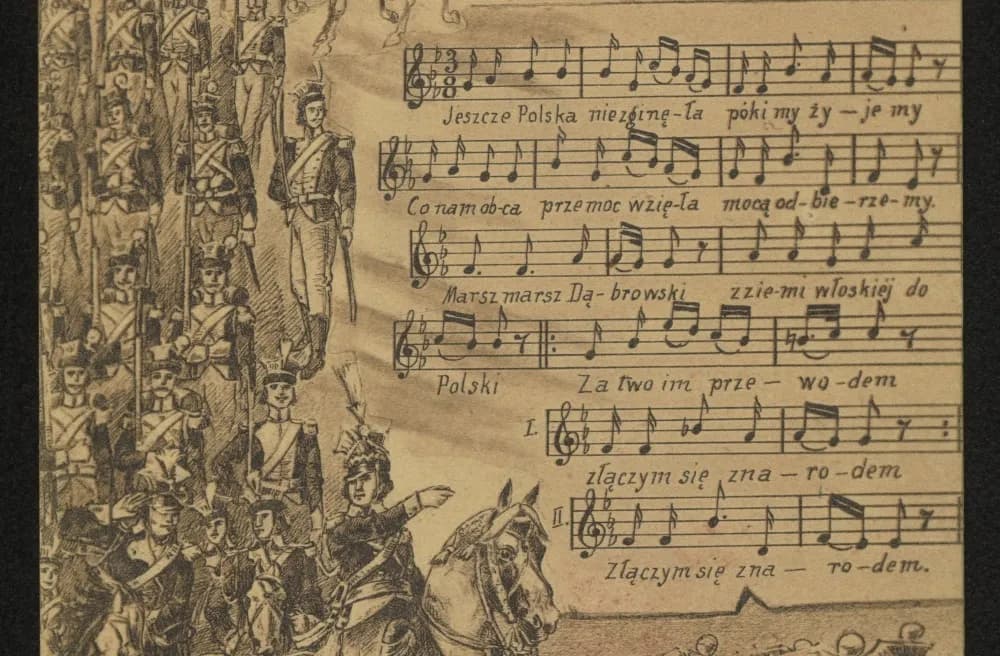 Jeszcze Polska niezginę-ła póki my ży – je my
Co nam ob-ca przemoc wzię-ła mocą od-bie-rze-my.
Marsz marsz Dą-browski zzie-mi włoskiéj do
Polski Za two im prze – wo-dem
I. złączym się zna – ro-dem
II. Złączym się zna – ro-dem.